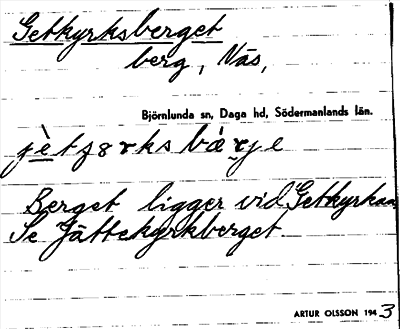 Getkyrksberget
berg, Näs,
Björnlunda sn, Daga hd, Södermanlands län.
jètʒɞrksbàrje
Berget ligger vid Getkyrkan,
Se Jättekyrkberget.
ARTUR OLSSON 1943